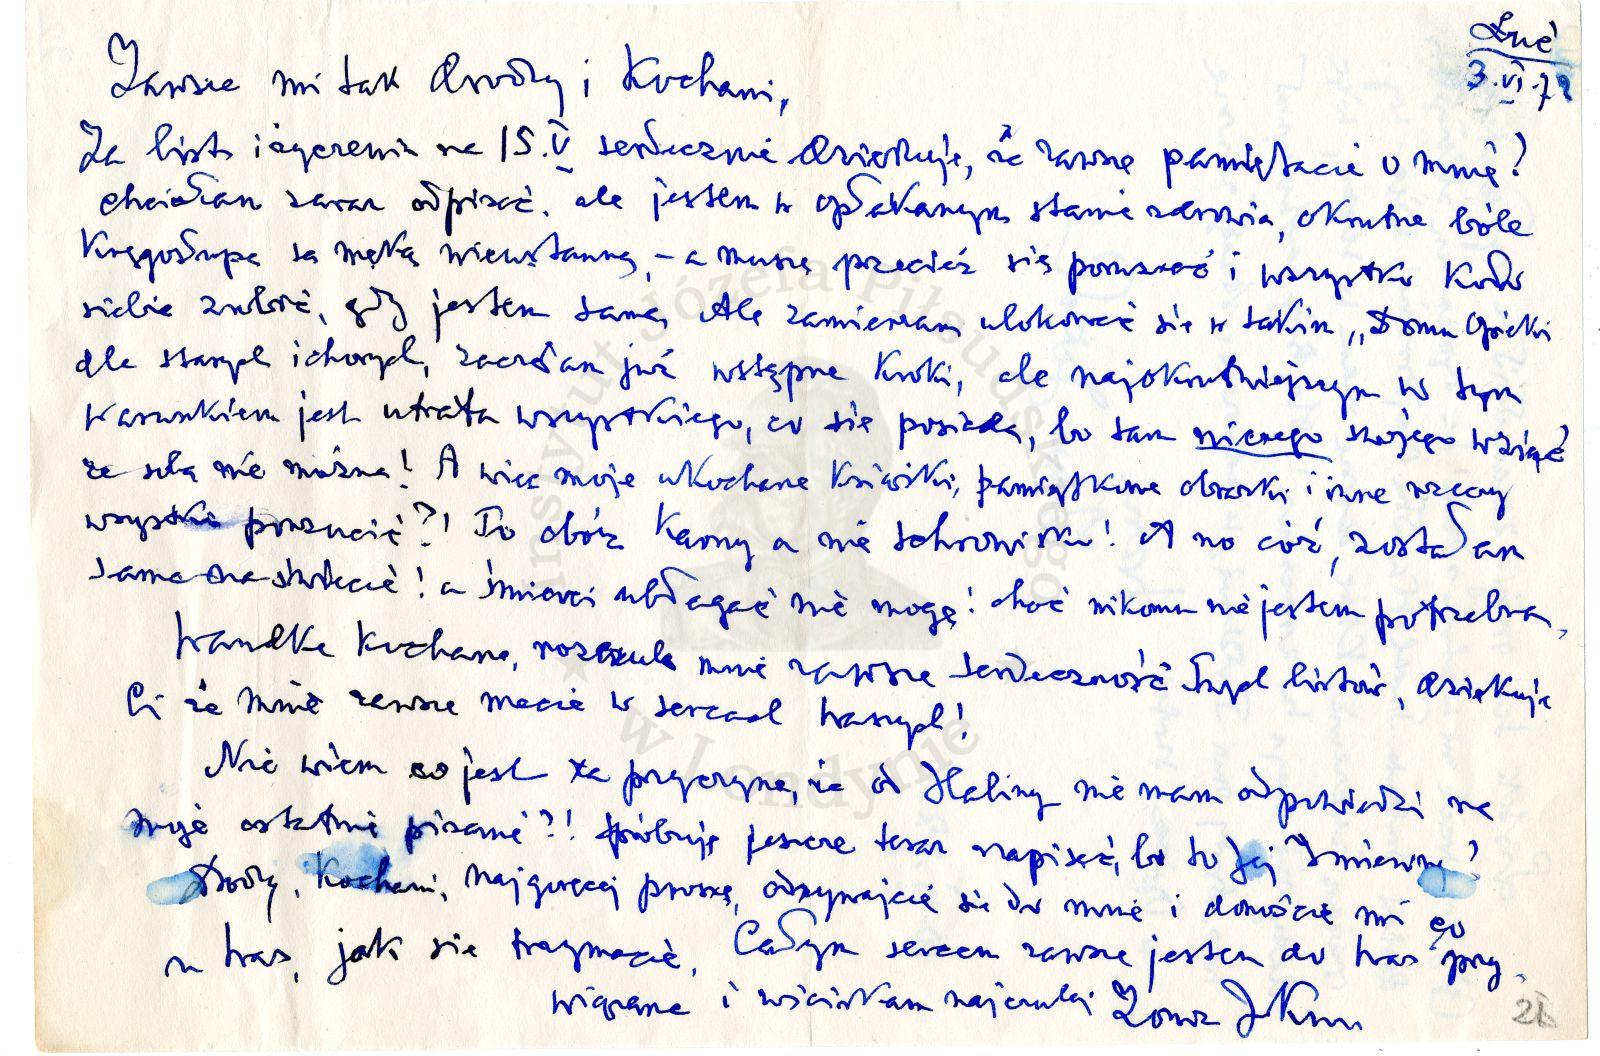 3.VI.72
Zawsze mi tak Drodzy i Kochani,
Za list i życzenia na 15.V serdecznie dziękuję, że zawsze pamiętacie o mnie!
chciałam zaraz odpisać, ale jestem w opłakanym stanie zdrowia, okrutne bóle
kręgosłupa są męką nieustanną, – a muszę przecież się poruszać i wszystko koło
siebie zrobić, gdy jestem sama. Ale zamierzam ulokować się w takim „Domu Opieki
dla starych i chorych, zaczęłam już wstępne kroki, ale najokrutniejszym w tym
warunkiem jest utrata wszystkiego, co się posiada, bo tam niczego swojego wziąć
ze sobą nie można! A więc moje ukochane książki, pamiątkowe obrazki i inne rzeczy
wszystko porzucić?! To obóz karny a nie schronisko! A no cóż, zostałam
sama na świecie! a śmierci ubłagać nie mogę! choć nikomu nie jestem potrzebna,
Wandko kochana, rozczula mnie zawsze serdeczność Twych listów, dziękuję
Ci że mnie zawsze macie w sercach Waszych!
Nie wiem co jest za przyczyna, że od Haliny nie mam odpowiedzi na
moje ostatnie pisanie?! Spróbuję jeszcze teraz napisać, bo to Jej Imieniny!
Drodzy, Kochani, najgoręcej proszę, odzywajcie się do mnie i donoście mi co
u Was, jak się trzymacie. Całym sercem zawsze jestem do Was przy-
wiązana i uściskam najczulej
Instytut Józefa Piłsudskiego
w Londynie